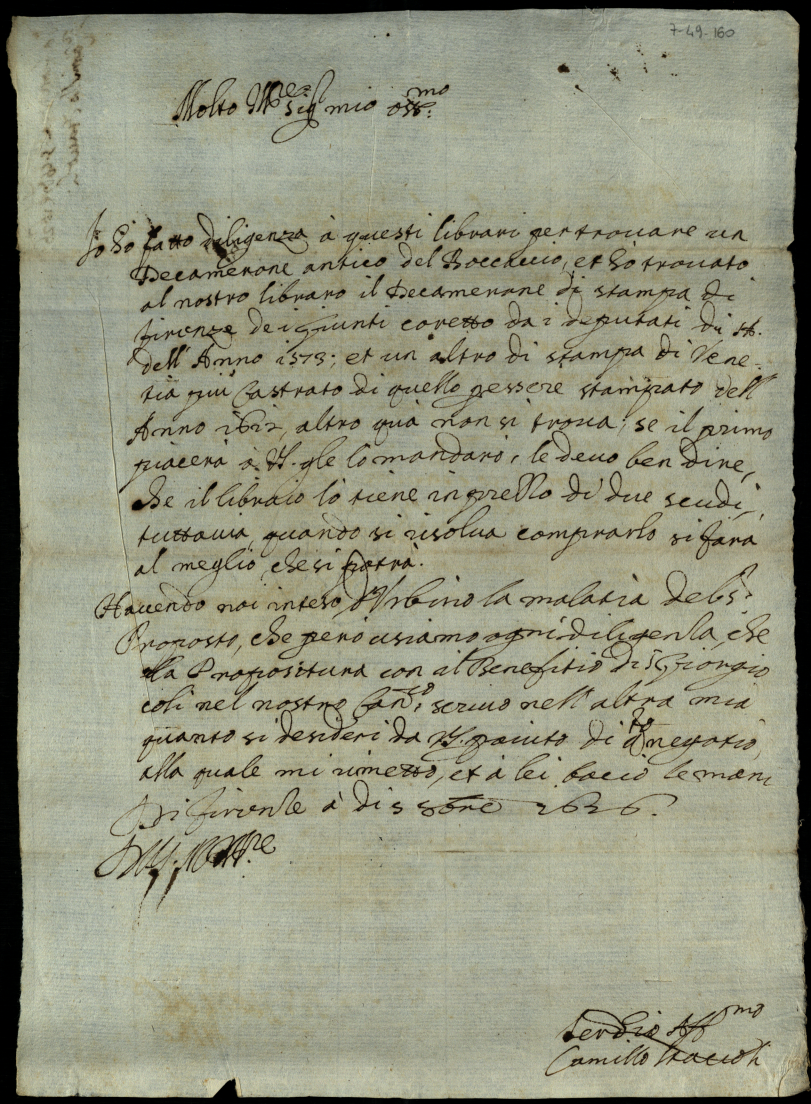 7-49-160
Molto Mre Sigr mio ossmo
Io hò fatto diligenza à questi librari per trouare un
Decamerone antico del Boccaccio, et hò trouato
al nostro libraro il Decamerone di stampa di
firenze de i Giunti coretto da i deputati di
dell'Anno 1573; et un altro di stampa di Vene-
tia più Castrato di quello per essere stampato dell'
Anno 1612, altro quà non si troua; se il primo
piacerà à VS. gle lo mandarò, le deuo ben dire,
che il libraio lo tiene in prezzo di due scudi,
tuttauia, quando si risolua comprarlo si farà
al meglio, che si potrà.
Hauendo noi inteso d'Vrbino la malatia del
Proposto, che però usiamo ogni diligenza, che
la Propositura con il Benefitio di S. Giorgio
coli nel nostro scriuo nell'altra mia
quanto si desideri da VS. aiuto di dto negotio,
alla quale mi rimetto, et à lei bacio le mani
Di firenze à di 5 1626.
Di VS. Molto Mre
Seruio Affmo
Camillo Staccoli